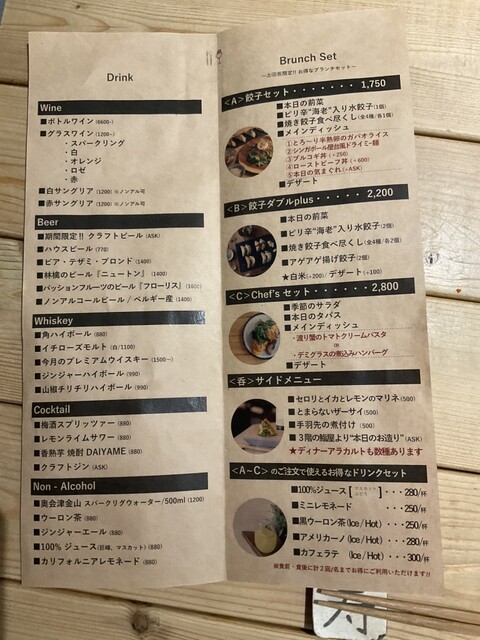 Drink
Wine
■ボトルワイン (6600~)
■グラスワイン (1200~)
・スパークリング
・白
・オレンジ
・ロゼ
・赤
■白サングリア (1200) ※ノンアル可
■赤サングリア (1200) ※ノンアル可
Beer
■期間限定!! クラフトビール (ASK)
■ハウスビール (770)
■ビア・デザミ・ブロンド (1400)
■林檎のビール『ニュートン』 (1400)
■パッションフルーツのビール『フローリス』 (1600)
■ノンアルコールビール / ベルギー産 (1400)
Whiskey
■角ハイボール (880)
■イチローズモルト (白/1100)
■今月のプレミアムウイスキー (1500~)
■ジンジャーハイボール (990)
■山椒チリチリハイボール (990)
Cocktail
■梅酒スプリッツァー (880)
■レモンライムサワー (880)
■香熟芋 焼酎 DAIYAME (880)
■クラフトジン (ASK)
Non - Alcohol
■奥会津金山 スパークリグウォーター/500ml (1200)
■ウーロン茶 (880)
■ジンジャーエール (880)
■100% ジュース (巨峰、マスカット) (880)
■カリフォルニアレモネード (880)
Brunch Set
～土日祝限定!! お得なブランチセット～
<A>餃子セット・・・・・・・ 1,750
■本日の前菜
■ピリ辛"海老"入り水餃子(1個)
■焼き餃子食べ尽くし(全4種/各1個)
■メインディッシュ
①とろ～り半熟卵のガパオライス
②シンガポール屋台風ドライミー麺
③プルコギ丼 (+250)
④ローストビーフ丼 (+600)
⑤本日の気まぐれ (+ASK)
■デザート
<B>餃子ダブルplus・・・・・ 2,200
■本日の前菜
■ピリ辛"海老"入り水餃子(2個)
■焼き餃子食べ尽くし(全4種/各2個)
■アゲアゲ揚げ餃子(2個)
★白米(+200) / デザート(+100)
<C>Chef's セット・・・・・・ 2,800
■季節のサラダ
■本日のタパス
■メインディッシュ
・渡り蟹のトマトクリームパスタ
or
・デミグラスの煮込みハンバーグ
■デザート
<呑>サイドメニュー
■セロリとイカとレモンのマリネ(500)
■とまらないザーサイ(500)
■手羽先の煮付け (500)
■３階の鮨屋より"本日のお造り"(ASK)
★ディナーアラカルトも数種あります
<A～C> のご注文で使えるお得なドリンクセット
■100%ジュース [マスカット ぶどう]・・・280/杯
■ミニレモネード ・・・250/杯
■黒ウーロン茶(Ice / Hot)・・・250/杯
■アメリカーノ (Ice / Hot)・・・280/杯
■カフェラテ (Ice / Hot)・・・300/杯
※食前・食後に計２回/名までお得にご利用いただけます!!